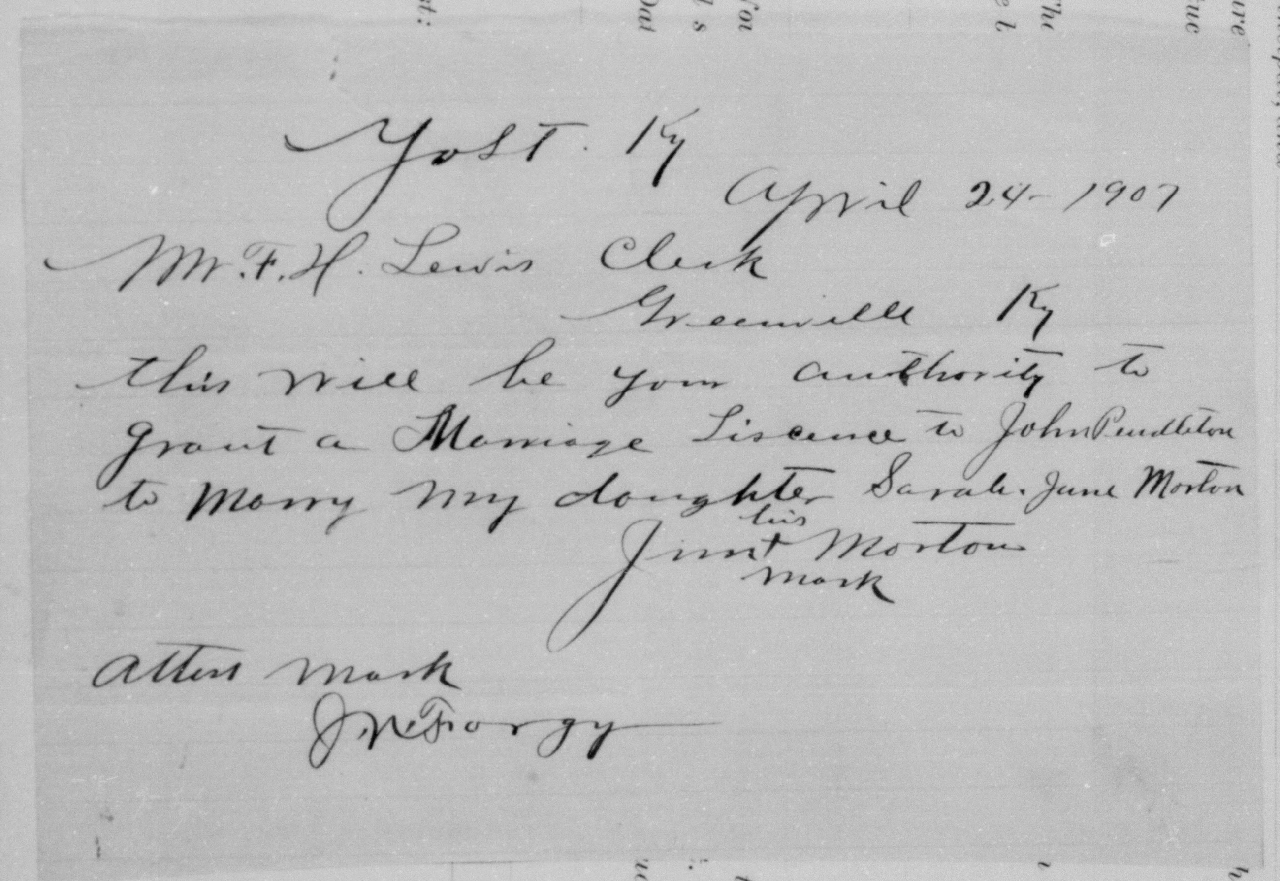 Yost. Ky
April 24- 1907
Mr. F. H. Lewis Clerk
Greenville Ky
this will be your authority to
grant a Marriage Liscence to John Pendleton
to Marry my daughter Sarah. Jane Morton
his
Jim + Morton
mark
Attest Mark
Forgy